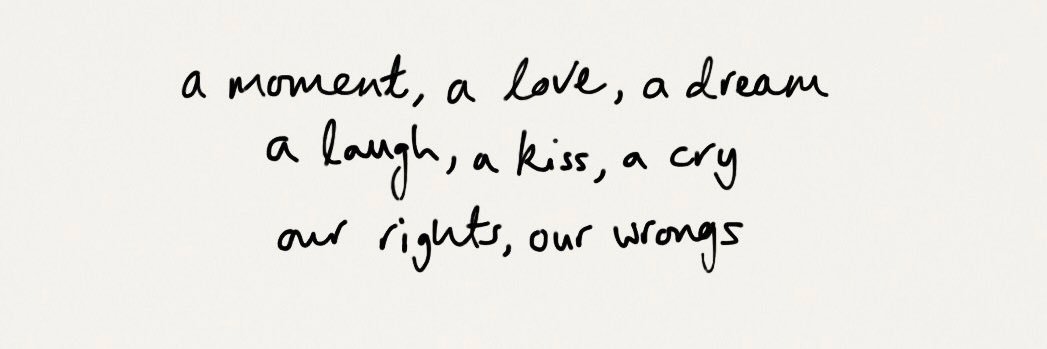 a moment, a love, a dream
a laugh, a kiss, a cry
our rights, our wrongs